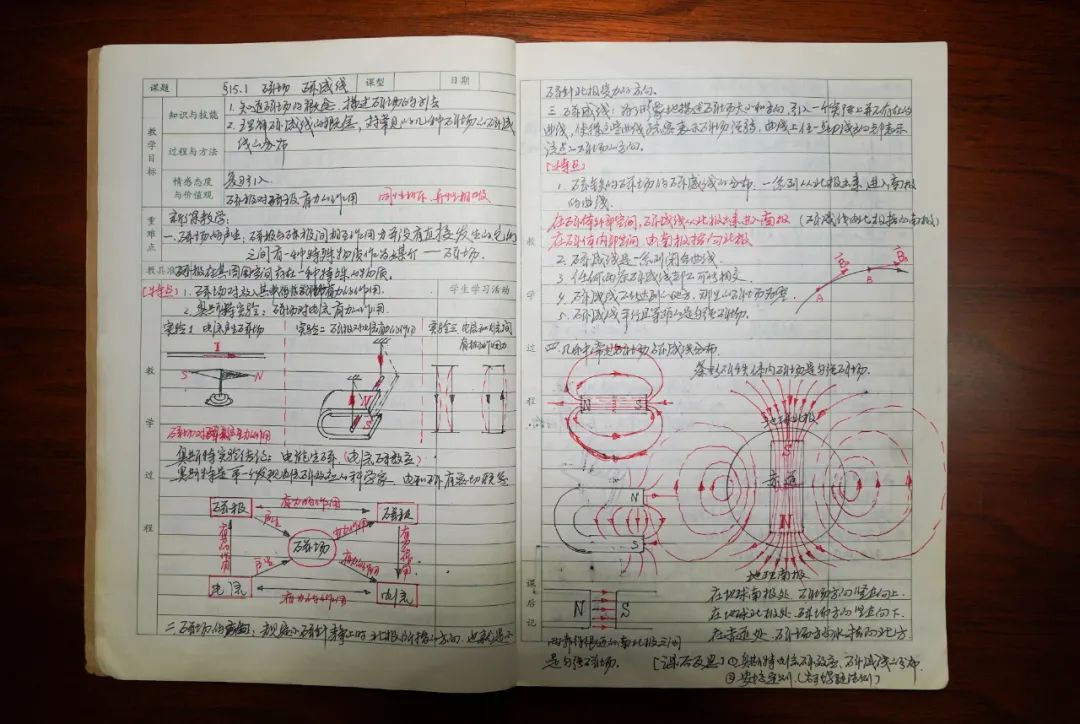 课题 §15.1 磁场 磁感线 课型 日期
教学目标
知识与技能
1. 知道磁场的概念，描述磁场的方法
2. 理解磁感线的概念，对常见的几种磁场的磁感
线的分布
过程与方法
情感态度与价值观
复习引入
磁极对磁极有力的作用 同性相斥，异性相吸
重难点
新课教学：
一、磁场的产生：磁极与磁极间相互作用力并没有直接发生的，它们
之间有一种特殊物质作为媒介 —— 磁场.
教具准
磁极在其周围空间存在一种特殊的物质.
[特点] 1. 磁场对放入其中的磁极有力的作用.
学生学习活动
2. 奥斯特实验：磁场对电流有力的作用.
实验1 电流产生磁场 实验二 磁极对电流有力的作用 实验三 电流和电流间
有相互作用力
I
S N
N
S
教学过程
奥斯特实验结论：电能生磁.(电流磁效应)
奥斯特是第一个发现电流磁效应的科学家 电和磁有密切联系
磁极 有力的作用 磁极
产生 有力的作用
有力的作用 磁场 有力的作用
产生 有力的作用
电流 有力的作用 电流
二、磁场的方向：规定小磁针静止时北极所指的方向，也就是小
磁针北极受力的方向.
三、磁感线：为了形象地描述磁场大小和方向，引入一个实际上并不存在的
曲线，使得这些曲线疏密表示磁场强弱，曲线上任一点切线方向都表示
该点的磁场的方向.
[特点]
1. 磁铁的磁场的磁感线的分布. 一条条从北极出来，进入南极
的曲线.
在磁体外部空间，磁感线从北极出来进入南极 (磁感线由北极指向南极)
在磁体内部空间 由南极指向北极
2. 磁感线是一条条闭合曲线.
3. 任何两条磁感线都不可能相交.
4. 磁感线不能达到的地方，那里的磁场为零.
5. 磁感线平行且等距的是匀强磁场.
A B
教学过程
四、几种常见的磁场磁感线分布.
条形磁铁体内磁场是匀强磁场.
N S
地球北极
S
赤道
N
地球南极
N
S
课后记
N S
在地球南极处，磁场方向竖直向上.
在地球北极处，磁场方向竖直向下.
在赤道处，磁场方向水平指向北方
两靠得很近的南北极之间
是匀强磁场.
[课后反思] ① 奥斯特电流磁效应，磁感线的分布.
② 安培定则.(右手螺旋法则)